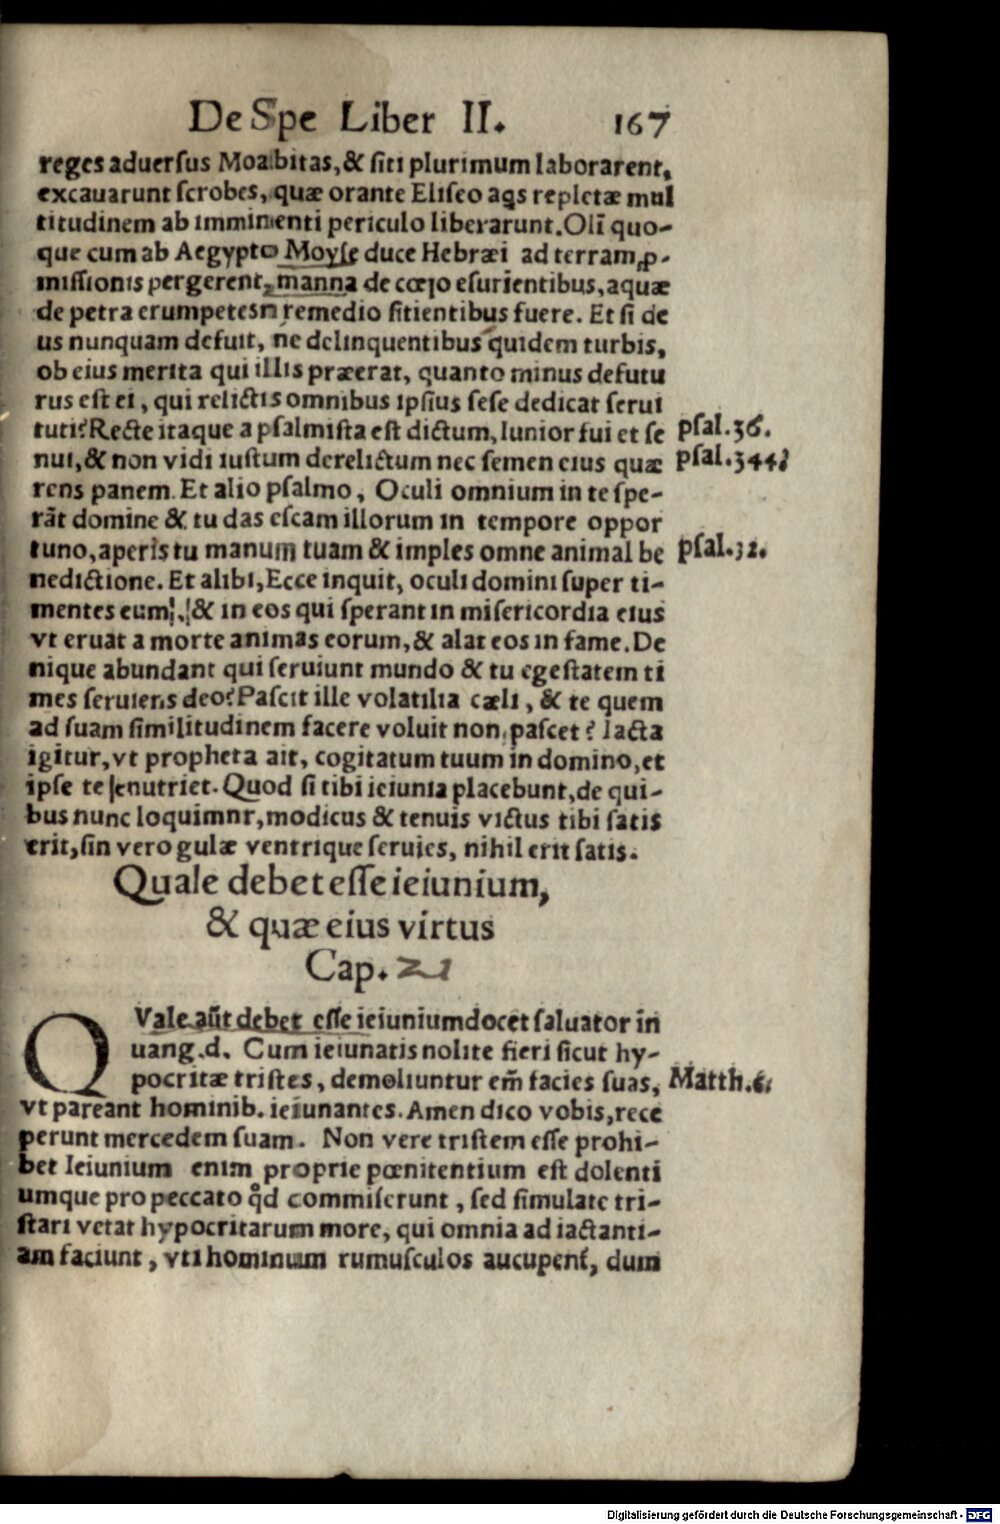 De Spe Liber II. 167
reges aduersus Moabitas, & siti plurimum laborarent,
excauarunt scrobes, quæ orante Eliseo aq̃s repletæ mul
titudinem ab imminenti periculo liberarunt. Olĩ quo-
que cum ab Aegypto Moyse duce Hebræi ad terram ꝓ-
missionis pergerent, manna de cœlo esurientibus, aquæ
de petra erumpetesn remedio sitientibus fuere. Et si de
us nunquam defuit, ne delinquentibus quidem turbis,
ob eius merita qui illis præerat, quanto minus defutu
rus est ei, qui relictis omnibus ipsius sese dedicat serui
tuti? Recte itaque a psalmista est dictum, Iunior fui et se
psal.36.
nui, & non vidi iustum derelictum nec semen eius quæ
psal.344
rens panem. Et alio psalmo, Oculi omnium in te spe-
rãt domine & tu das escam illorum in tempore oppor
tuno, aperis tu manum tuam & imples omne animal be
psal.32.
nedictione. Et alibi, Ecce inquit, oculi domini super ti-
mentes eum, & in eos qui sperant in misericordia eius
vt eruat a morte animas eorum, & alat eos in fame. De
nique abundant qui seruiunt mundo & tu egestatem ti
mes seruiens deo? Pascit ille volatilia cæli, & te quem
ad suam similitudinem facere voluit non pascet? Iacta
igitur, vt propheta ait, cogitatum tuum in domino, et
ipse te enutriet. Quod si tibi ieiunia placebunt, de qui-
bus nunc loquimnr, modicus & tenuis victus tibi satis
erit, sin vero gulæ ventrique seruies, nihil erit satis.
Quale debet esse ieiunium,
& quæ eius virtus
Cap. 21
QVale aũt debet esse ieiunium docet saluator in
uang.d. Cum ieiunatis nolite fieri sicut hy-
pocritæ tristes, demoliuntur em̃ facies suas,
Matth.6.
vt pareant hominib. ieiunantes. Amen dico vobis, rece
perunt mercedem suam. Non vere tristem esse prohi-
bet Ieiunium enim proprie pœnitentium est dolenti
umque pro peccato q̊d commiserunt, sed simulate tri-
stari vetat hypocritarum more, qui omnia ad iactanti-
am faciunt, vti hominum rumusculos aucupent́, dum
Digitalisierung gefördert durch die Deutsche Forschungsgemeinschaft - DFG